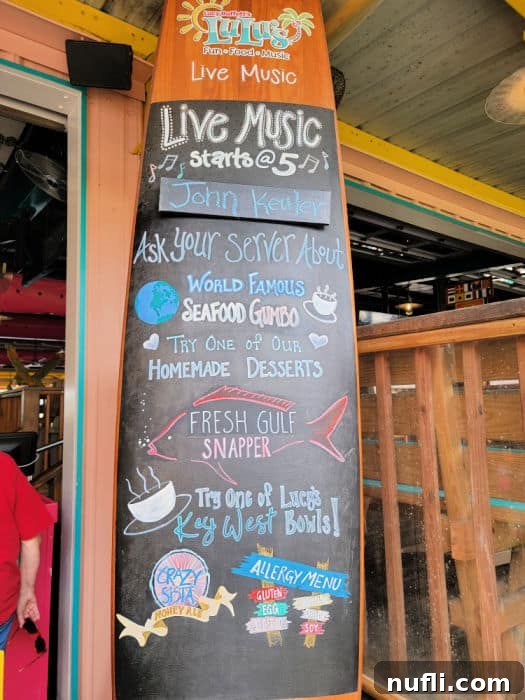 Lucy Buffett's
LuLu's
Fun • Food • Music
Live Music
Live Music
starts @ 5
John
Ask Your Server About
World Famous
Seafood Gumbo
Try One of Our
Homemade Desserts
Fresh Gulf
Snapper
Try One of Lucy's
Key West Bowls!
Crazy
Sista
Honey Ale
Allergy Menu
Gluten
Egg
Soy
nufli.com